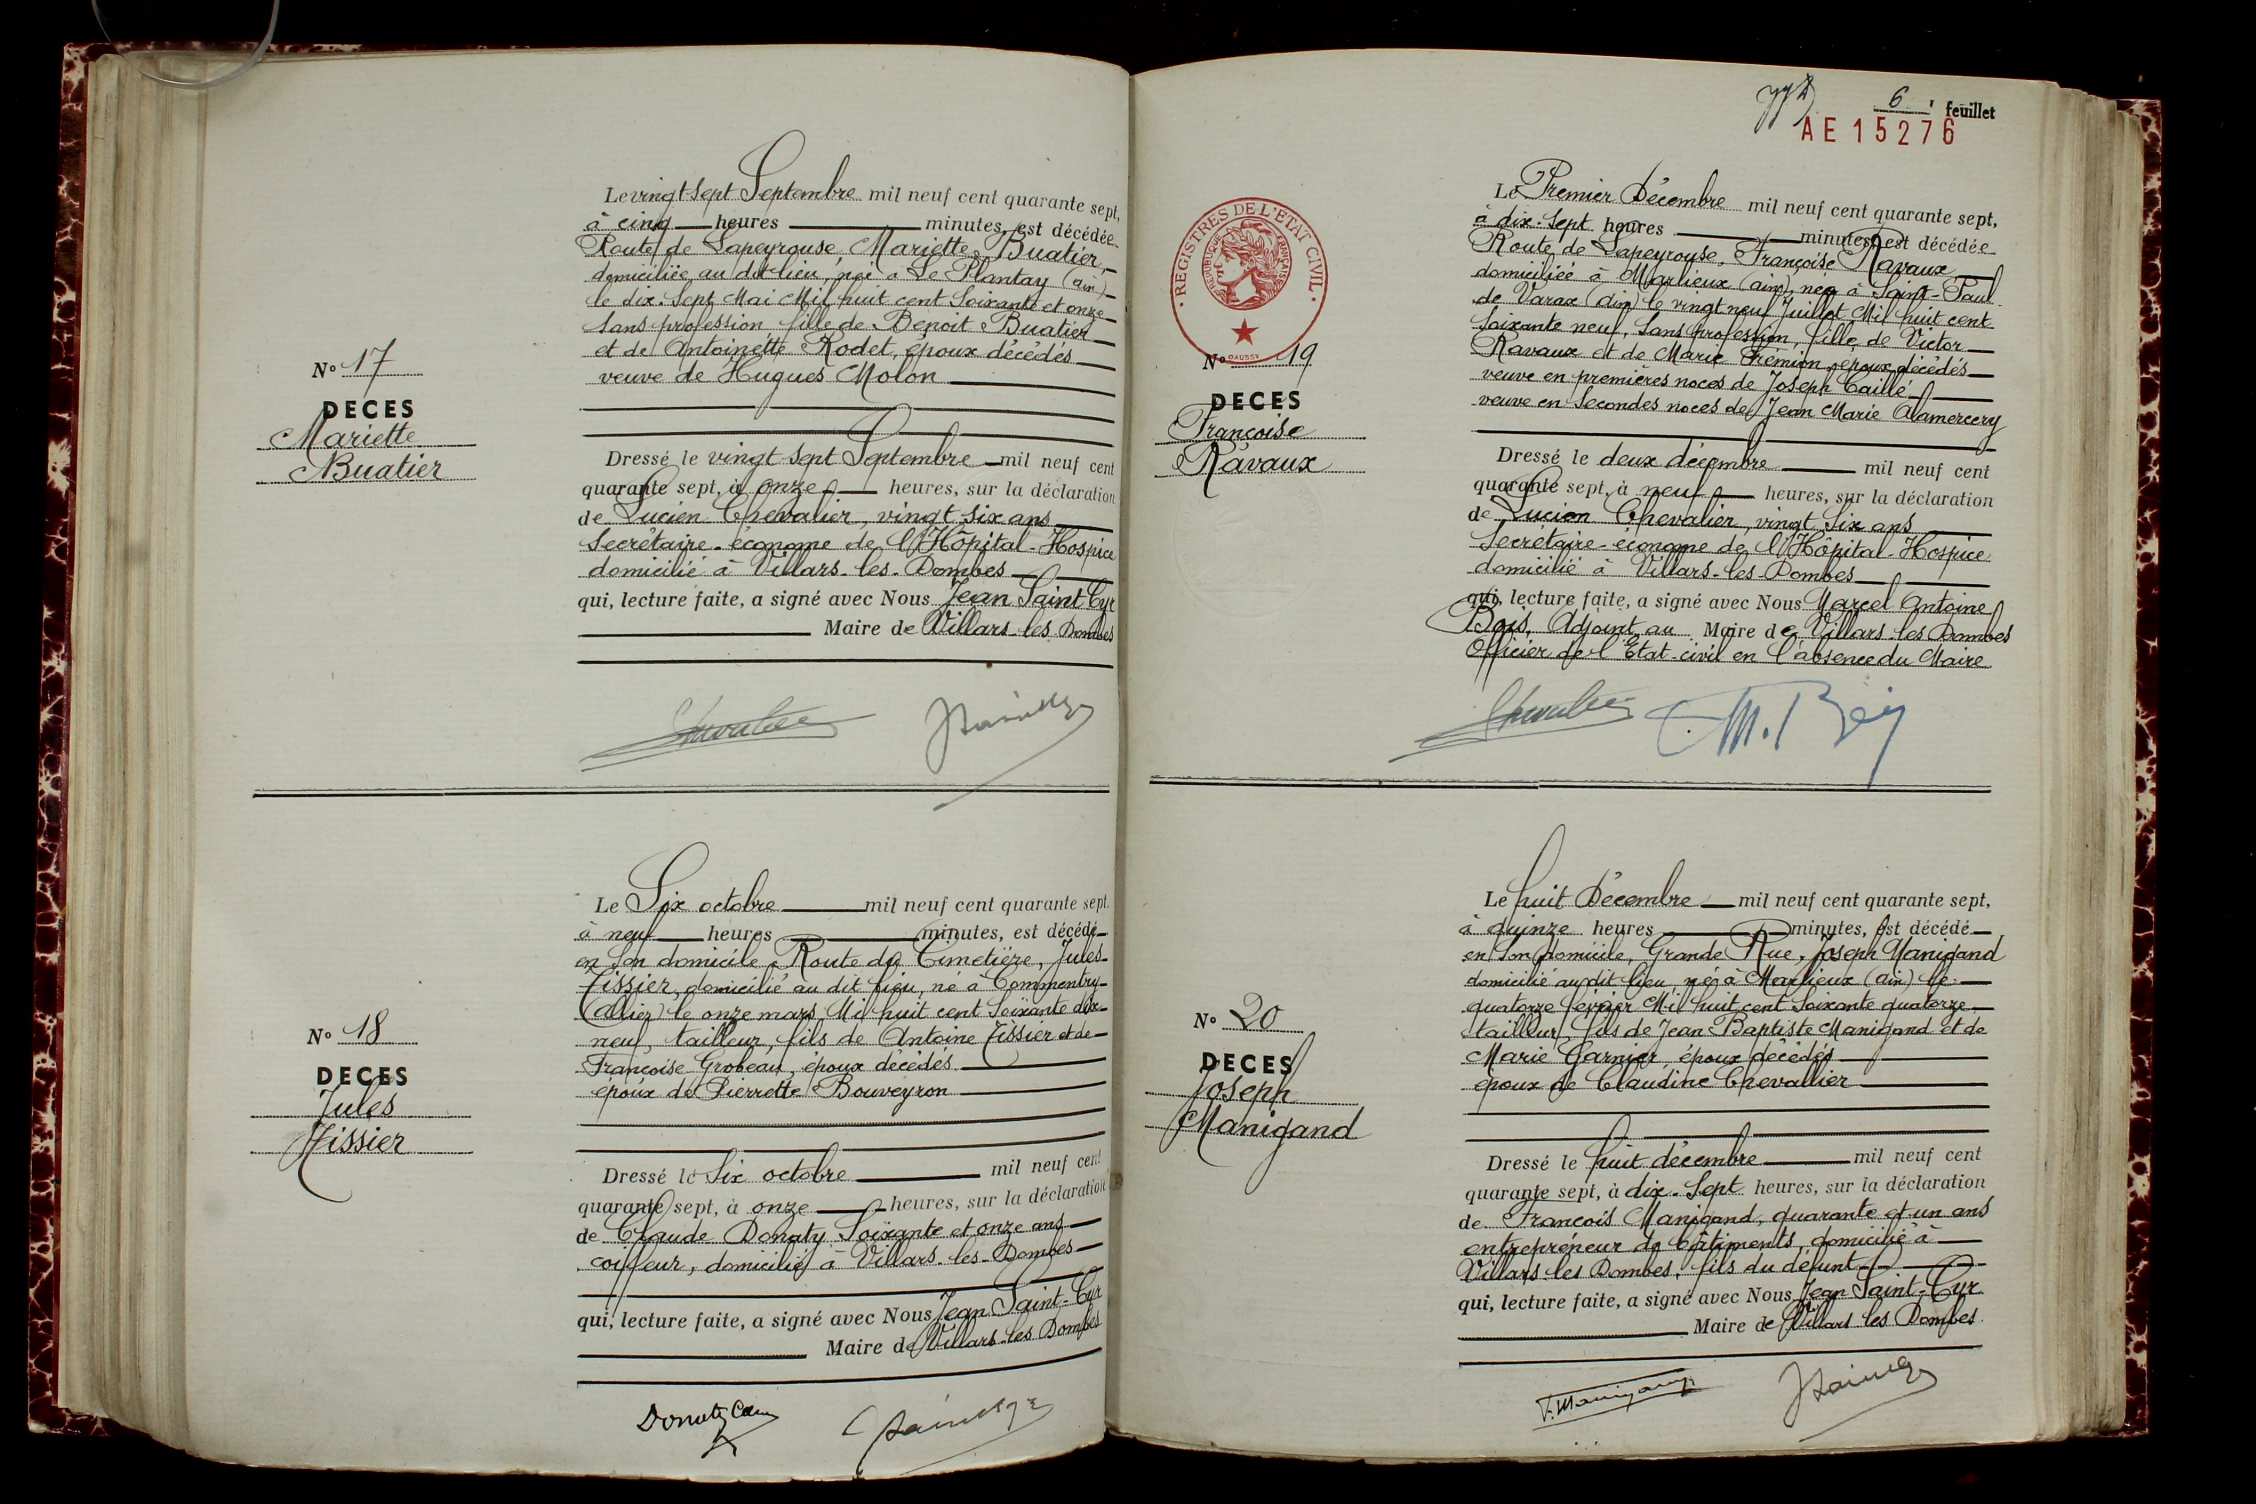 Le vingt-sept Septembre mil neuf cent quarante sept,
à cinq heures minutes, est décédée
Route de Lapeyrouse, Mariette Buatier,
domiciliée au dit lieu, née à Le Plantay (ain)
le dix-sept Mai Mil huit cent soixante et onze
sans profession, fille de Benoit Buatier
et de Antoinette Rodet, époux décédés
veuve de Hugues Molon
N° 17
DECES
Mariette
Buatier
Dressé le vingt sept Septembre mil neuf cent
quarante sept, à onze heures, sur la déclaration
de Lucien Chevalier, vingt six ans
Secrétaire-économe de l'Hôpital-Hospice
domicilié à Villars-les-Dombes
qui, lecture faite, a signé avec Nous Jean Saint Cyr
Maire de Villars-les-Dombes
Chevalier
Le Six octobre mil neuf cent quarante sept.
à neuf heures minutes, est décédé
en son domicile, Route du Cimetière, Jules
Tissier, domicilié au dit lieu, né à Commentry
(Allier) le onze mars Mil huit cent soixante dix-
neuf, tailleur, fils de Antoine Tissier et de
Françoise Grobeau, époux décédés
époux de Pierrette Bouveyron
N° 18
DECES
Jules
Tissier
Dressé le Six octobre mil neuf cent
quarante sept, à onze heures, sur la déclaration
de Claude Donaty Soixante et onze ans
coiffeur, domicilié à Villars-les-Dombes
qui, lecture faite, a signé avec Nous Jean Saint-Cyr
Maire de Villars-les Dombes
Donaty
6 feuillet
AE 15276
REGISTRES DE L'ETAT CIVIL
REPUBLIQUE FRANÇAISE
DAUSSY
Le Premier Décembre mil neuf cent quarante sept,
à dix-sept heures minutes, est décédée
Route de Lapeyrouse, Françoise Ravaux
domiciliée à Marlieux (ain), née à Saint-Paul
de Varax (ain) le vingt neuf Juillet Mil huit cent
soixante neuf, sans profession, fille de Victor
Ravaux et de Marie Frémion, époux décédés
veuve en premières noces de Joseph Caillé
veuve en secondes noces de Jean Marie Alamercery
N° 19
DECES
Françoise
Ravaux
Dressé le deux décembre mil neuf cent
quarante sept, à neuf heures, sur la déclaration
de Lucien Chevalier, vingt Six ans
Secrétaire-économe de l'Hôpital-Hospice
domicilié à Villars-les-Dombes
qui, lecture faite, a signé avec Nous Marcel Antoine
Bois, Adjoint au Maire de Villars-les Dombes
Officier de l'Etat-civil en l'absence du Maire
Chevalier
Le huit Décembre mil neuf cent quarante sept,
à quinze heures minutes, est décédé
en son domicile, Grande Rue, Joseph Manigand
domicilié au dit lieu, né à Marlieux (ain) le
quatorze février Mil huit cent soixante quatorze
tailleur, fils de Jean Baptiste Manigand et de
Marie Garnier, époux décédés
époux de Claudine Chevallier
N° 20
DECES
Joseph
Manigand
Dressé le huit décembre mil neuf cent
quarante sept, à dix-sept heures, sur la déclaration
de François Manigand, quarante et un ans
entrepreneur de bâtiments, domicilié à
Villars-les Dombes, fils du défunt
qui, lecture faite, a signé avec Nous Jean Saint-Cyr
Maire de Villars les Dombes
F. Manigand